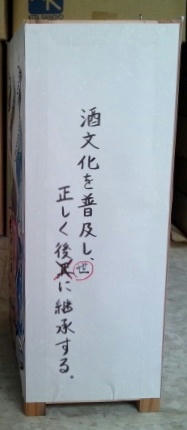 酒文化を普及し、
正しく後世に継承する。